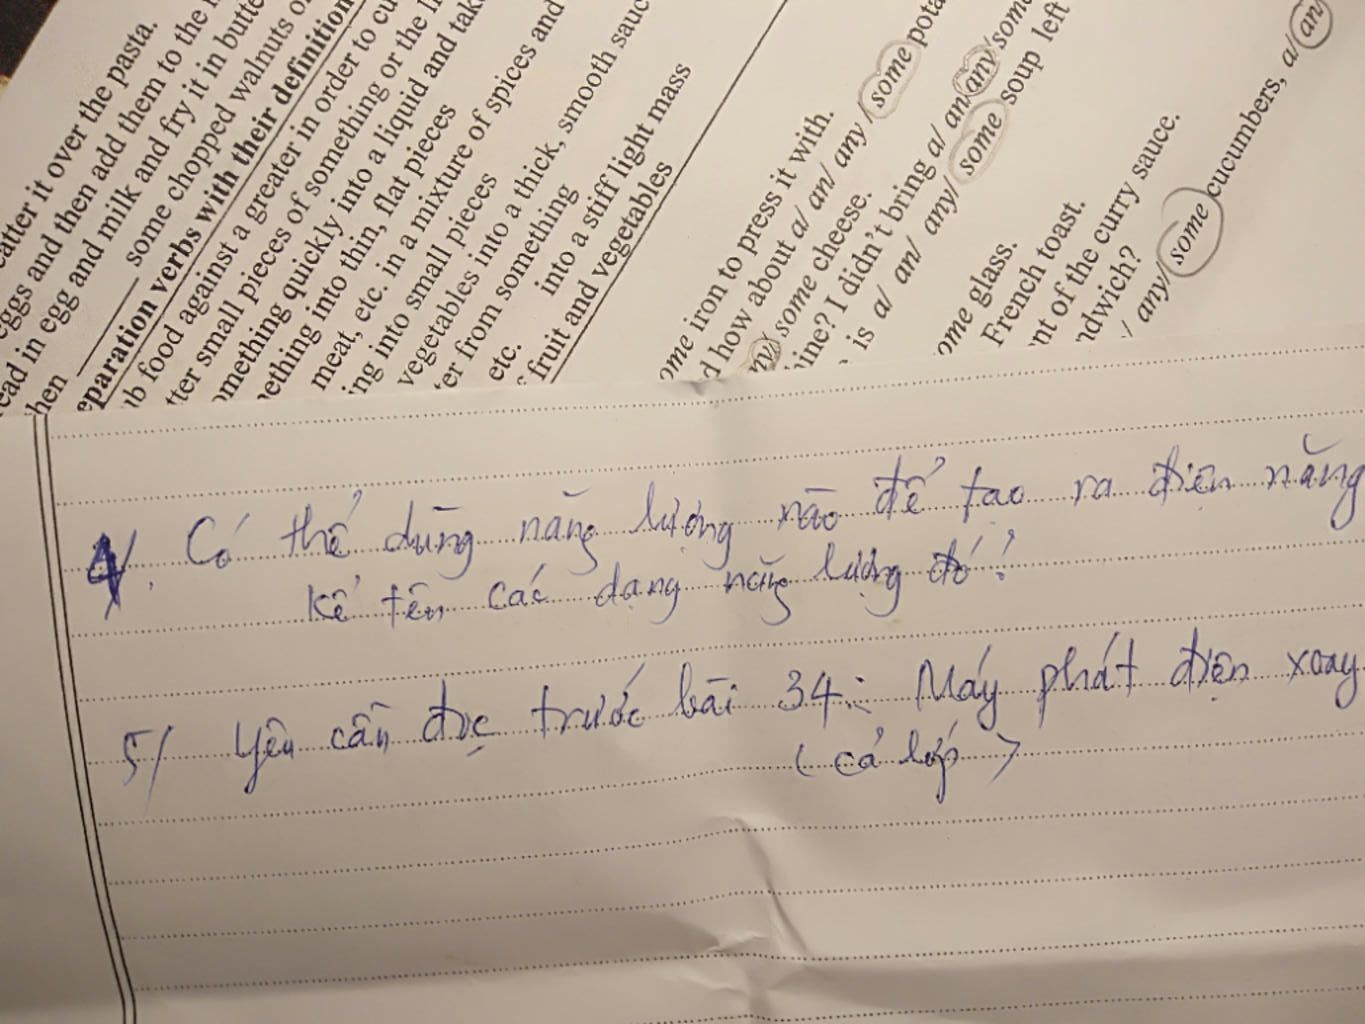 catter it over the pasta.
eggs and then add them to the
ead in egg and milk and fry it in butte
hen ______ some chopped walnuts o
eparation verbs with their definition
ub food against a greater in order to cu
tter small pieces of something or the li
omething quickly into a liquid and tak
nething into thin, flat pieces
meat, etc. in a mixture of spices and
ing into small pieces
vegetables into a thick, smooth sauc
ter from something
etc. into a stiff light mass
fruit and vegetables
ome iron to press it with.
d how about a/ an/ any / some pota
ny/ some cheese.
hine? I didn't bring a/ an/ any/some
is a/ an/ any/ some soup left
ome glass.
French toast.
nt of the curry sauce.
ndwich?
/ any/ some cucumbers, a/ an/
4/. Có thể dùng năng lượng nào để tạo ra điện năng
kể tên các dạng năng lượng đó?
5/ Yêu cầu đọc trước bài 34: Máy phát điện xoay
(cả lớp)